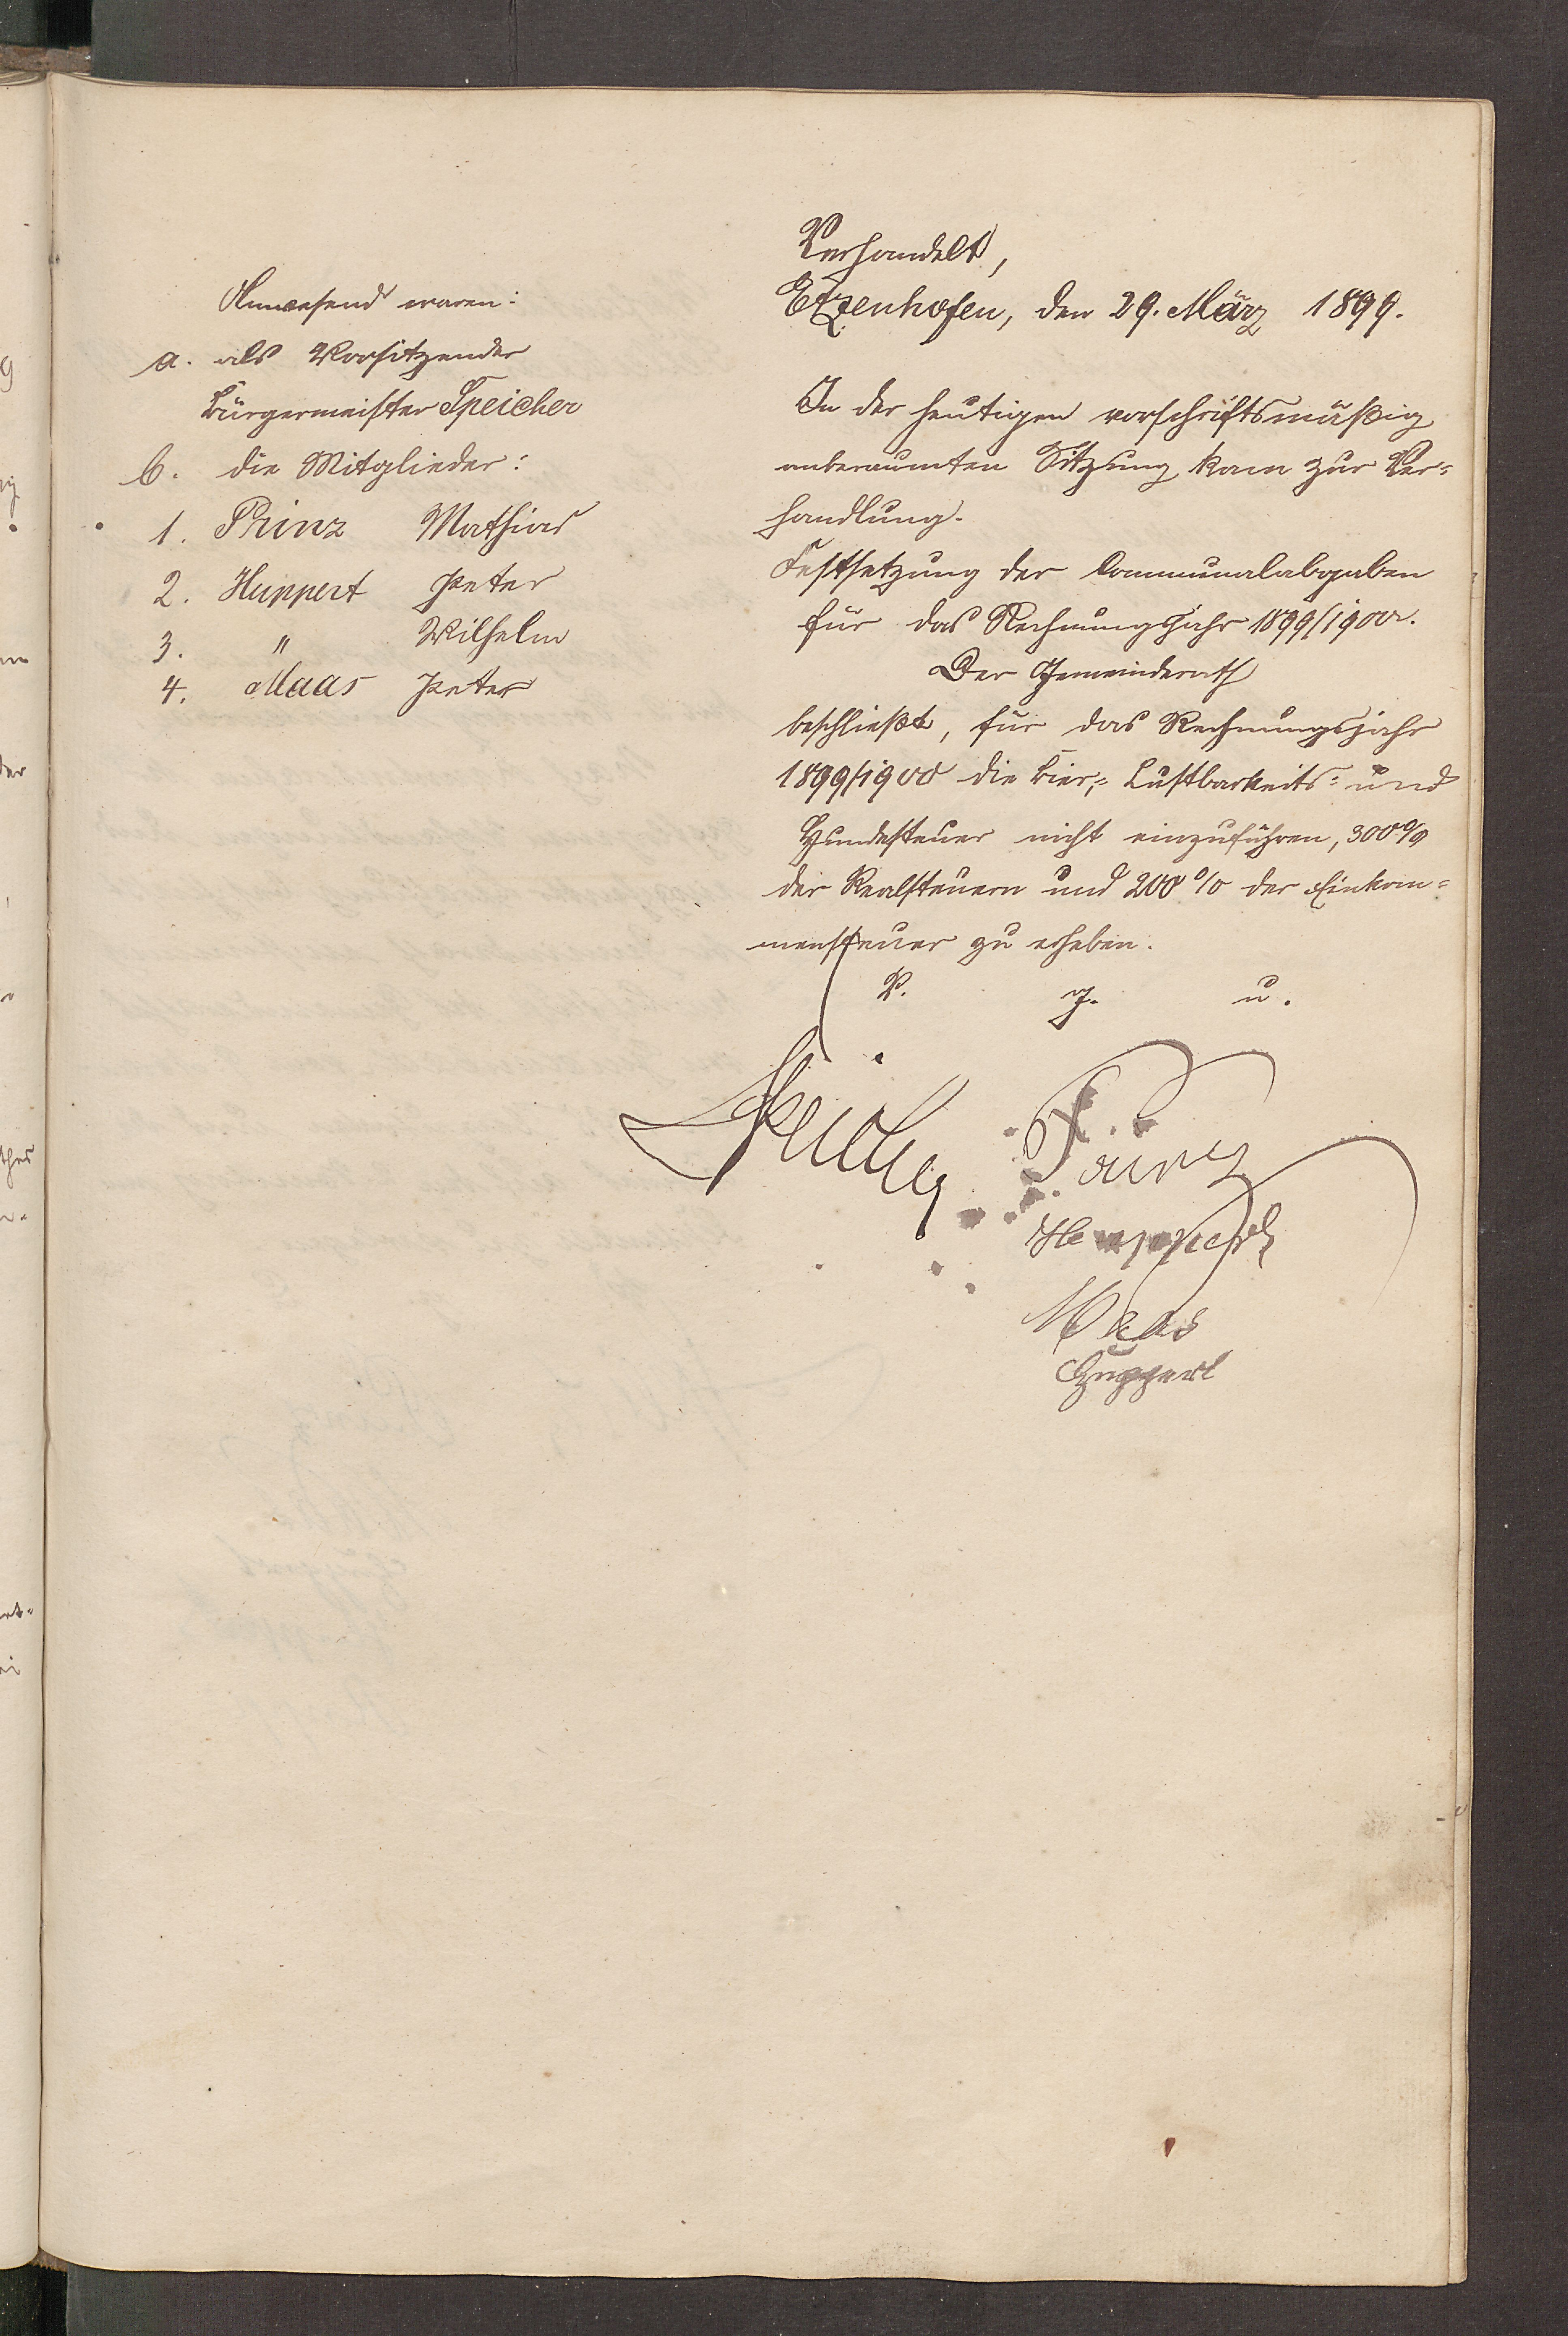 Anwesend waren:
a. als Vorsitzender
Bürgermeister Speicher
b. die Mitglieder:
1. Prinz Mathias
2. Huppert Peter
3. " Wilhelm
4. Maas Peter
Verhandelt,
Etzenhofen, den 29. März 1899.
In der heutigen vorschriftsmäßig
anberaumten Sitzung kam zur Ver=
handlung.
Festsetzung der Communalabgaben
für das Rechnungsjahr 1899/1900.
Der Gemeinderath
beschließt, für das Rechnungsjahr
1899/1900 die Bier,= Lustbarkeits= und
Hundesteuer nicht einzuführen, 300 %
der Realsteuern und 200 % der Einkom=
mensteuer zu erheben.
V. g. u.
Speicher Prinz
Huppert
Maas
Huppert